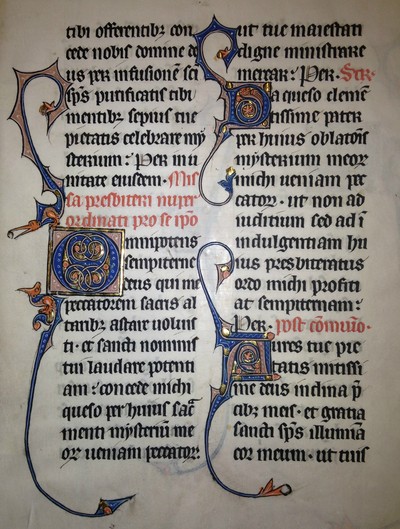 tibi offerentibꝫ con
cede nobis domine de
us per infusionem sci
sp̄s purificatis tibi
mentibꝫ sepius tue
pietatis celebrare my
sterium : Per in u
nitate eiusdem · Mis
sa presbiteri nuper
ordinati pro se ip̄o
Omnipotens
sempiterne
deus qui me
peccatorem sacris al
taribꝫ astare voluis
ti · et sancti nominis
tui laudare potenti
am : concede michi
queso per huius sac̄
menti mysterium me
or ueniam peccator᷑
Sicut tue maiestati
digne ministrare
merear : Per · Secr·
Da queso clemē
tissime pater
per huius oblatōis
mysterium meor᷑
michi ueniam pec
cator᷑ · ut non ad
iudicium sed ad i
ndulgentiam hu
ius presbiteratus
ordo michi profiti
at sempiternam :
Per · post cōmunio·
Aures tue pie
tatis mitissi
me deus inclina p̄
cibꝫ meis · et gratia
sancti sp̄s illumina
cor meum · ut tuis